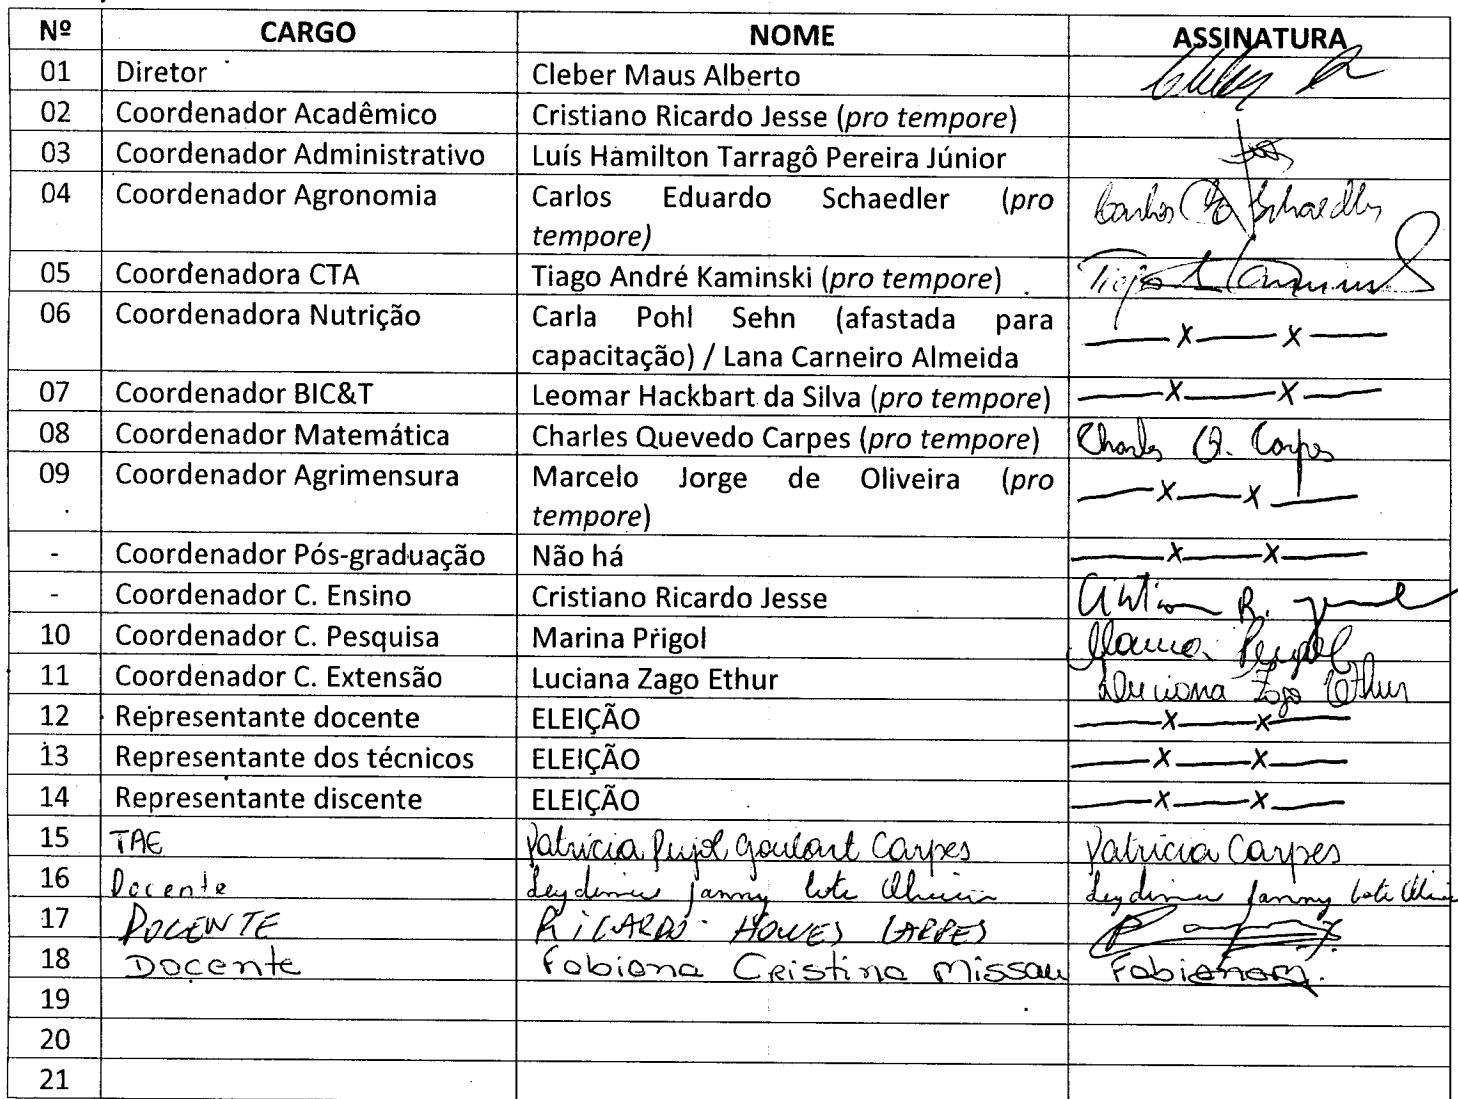 Nº CARGO NOME ASSINATURA
01 Diretor Cleber Maus Alberto Cleber
02 Coordenador Acadêmico Cristiano Ricardo Jesse (pro tempore)
03 Coordenador Administrativo Luís Hamilton Tarragô Pereira Júnior
04 Coordenador Agronomia Carlos Eduardo Schaedler (pro Carlos E Schaedler
tempore)
05 Coordenadora CTA Tiago André Kaminski (pro tempore) Tiago A Kaminski
06 Coordenadora Nutrição Carla Pohl Sehn (afastada para —x—x—
capacitação) / Lana Carneiro Almeida
07 Coordenador BIC&T Leomar Hackbart da Silva (pro tempore) —x—x—
08 Coordenador Matemática Charles Quevedo Carpes (pro tempore) Charles Q. Carpes
09 Coordenador Agrimensura Marcelo Jorge de Oliveira (pro —x—x—
tempore)
- Coordenador Pós-graduação Não há —x—x—
- Coordenador C. Ensino Cristiano Ricardo Jesse Cristiano R. Jesse
10 Coordenador C. Pesquisa Marina Prigol Marina Prigol
11 Coordenador C. Extensão Luciana Zago Ethur Luciana Zago Ethur
12 Representante docente ELEIÇÃO —x—x—
13 Representante dos técnicos ELEIÇÃO —x—x—
14 Representante discente ELEIÇÃO —x—x—
15 TAE Patricia Pujol Goulart Carpes Patricia Carpes
16 Docente
17 DOCENTE RICARDO HOWES CARPES
18 Docente Fabiana Cristina Missau Fabiana M.
19
20
21